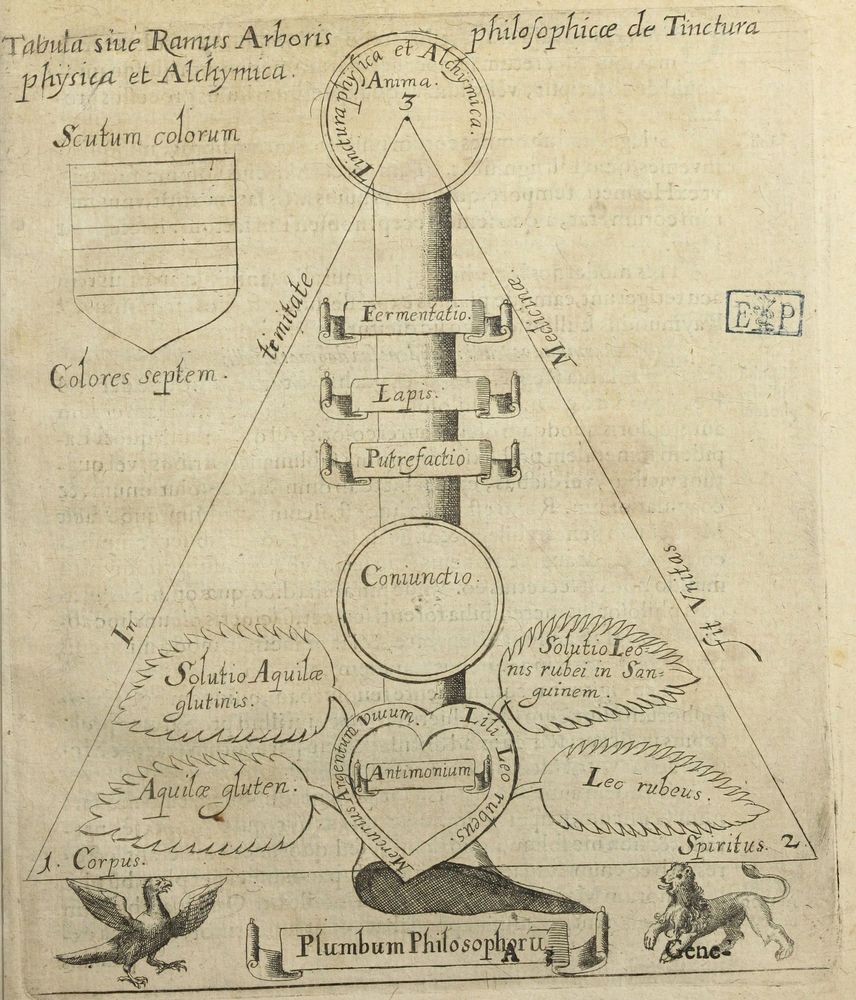 Tabula siue Ramus Arboris philosophicæ de Tinctura
physica et Alchymica.
Tinctura physica et Alchymica.
Anima.
3
Scutum colorum
Colores septem.
In trinitate
Medicinæ.
fit Vnitas
Fermentatio.
Lapis.
Putrefactio
Coniunctio.
Solutio Aquilæ
glutinis.
Solutio Leo-
nis rubei in San-
guinem.
Mercurius Argentum viuum.
Lili. Leo rubeus.
Antimonium
Aquilæ gluten.
Leo rubeus.
1. Corpus.
Spiritus. 2.
Plumbum Philosophorū
A 3
Gene-
E P